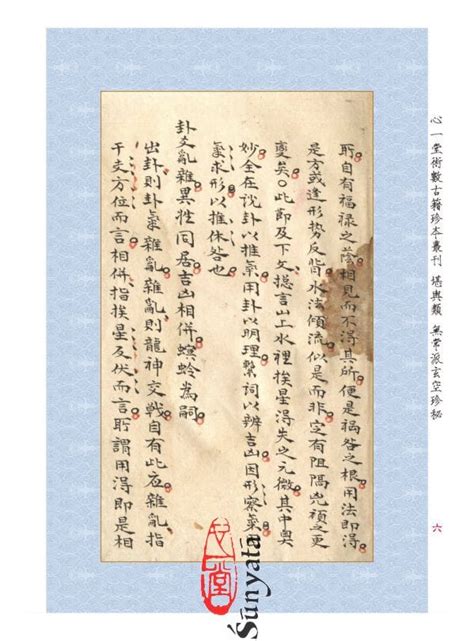 心一堂術數古籍珍本叢刊 堪輿類 無常派玄空珍秘
六
所自有福禄之蔭相見而不得其所便是禍咎之根用法即得
是方或逢形势反背水法傾流似是而非定有阻隔兇禎之更
變矣〇此即及下文摠言山上水裡挨星得失之元微其中奥
妙全在說卦以推氣用卦以明理繫詞以辨吉凶因形察氣
氣求形以推休咎也
卦爻亂雜異性同居吉凶相併螟蛉為嗣
出卦則卦氣雜亂雜亂則龍神交戰自有此应雜亂指
干支方位而言相併指挨星反伏而言所謂用得即是相
心一堂
Śūnyatā